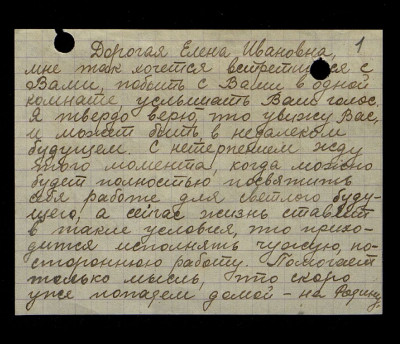 Дорогая Елена Ивановна, 1
мне так хочется встретиться с
Вами, побыть с Вами в одной
комнате, услышать Ваш голос.
Я твердо верю, что увижу Вас,
и может быть, в недалеком
будущем. С нетерпением жду
того момента, когда можно
будет полностью посвятить
себя работе для светлого буду-
щего, а сейчас жизнь ставит
в такие условия, что прихо-
дится исполнять чужую, по-
стороннюю работу. Помогает
только мысль, что скоро
уже попадем домой - на Родину,